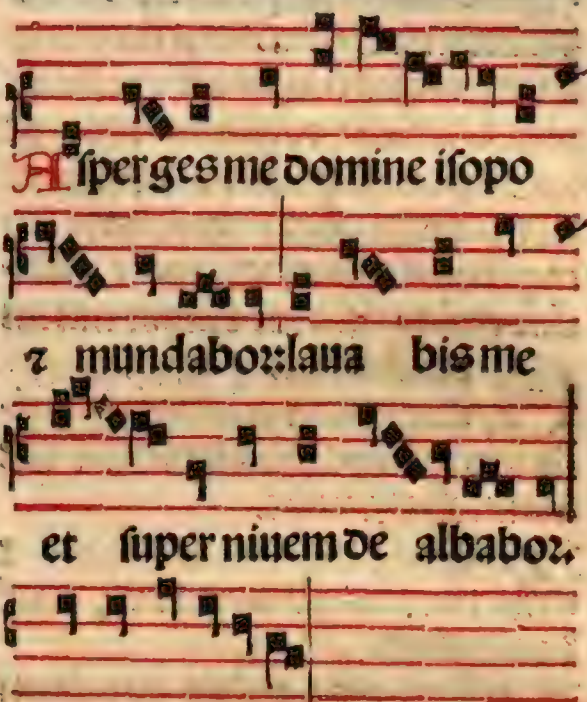 Aſperges me domine iſopo
⁊ mundaboꝛ: laua bis me
et ſuper niuem de albaboꝛ.